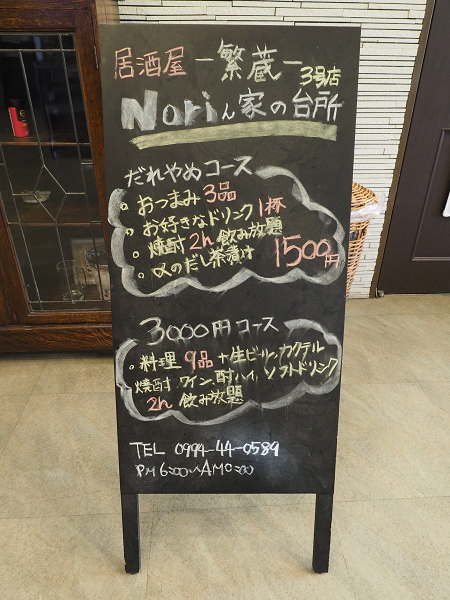 居酒屋 ー繁蔵ー
3号店
Noriん家の台所
だれやめコース
おつまみ 3品
お好きなドリンク 1杯
焼酎 2h 飲み放題
〆のだし茶漬け
1500円
3000円コース
料理 9品 +生ビール、カクテル
焼酎 ワイン、酎ハイ、ソフトドリンク
2h 飲み放題
TEL 0994-44-0589
PM 6:00〜AM0:00